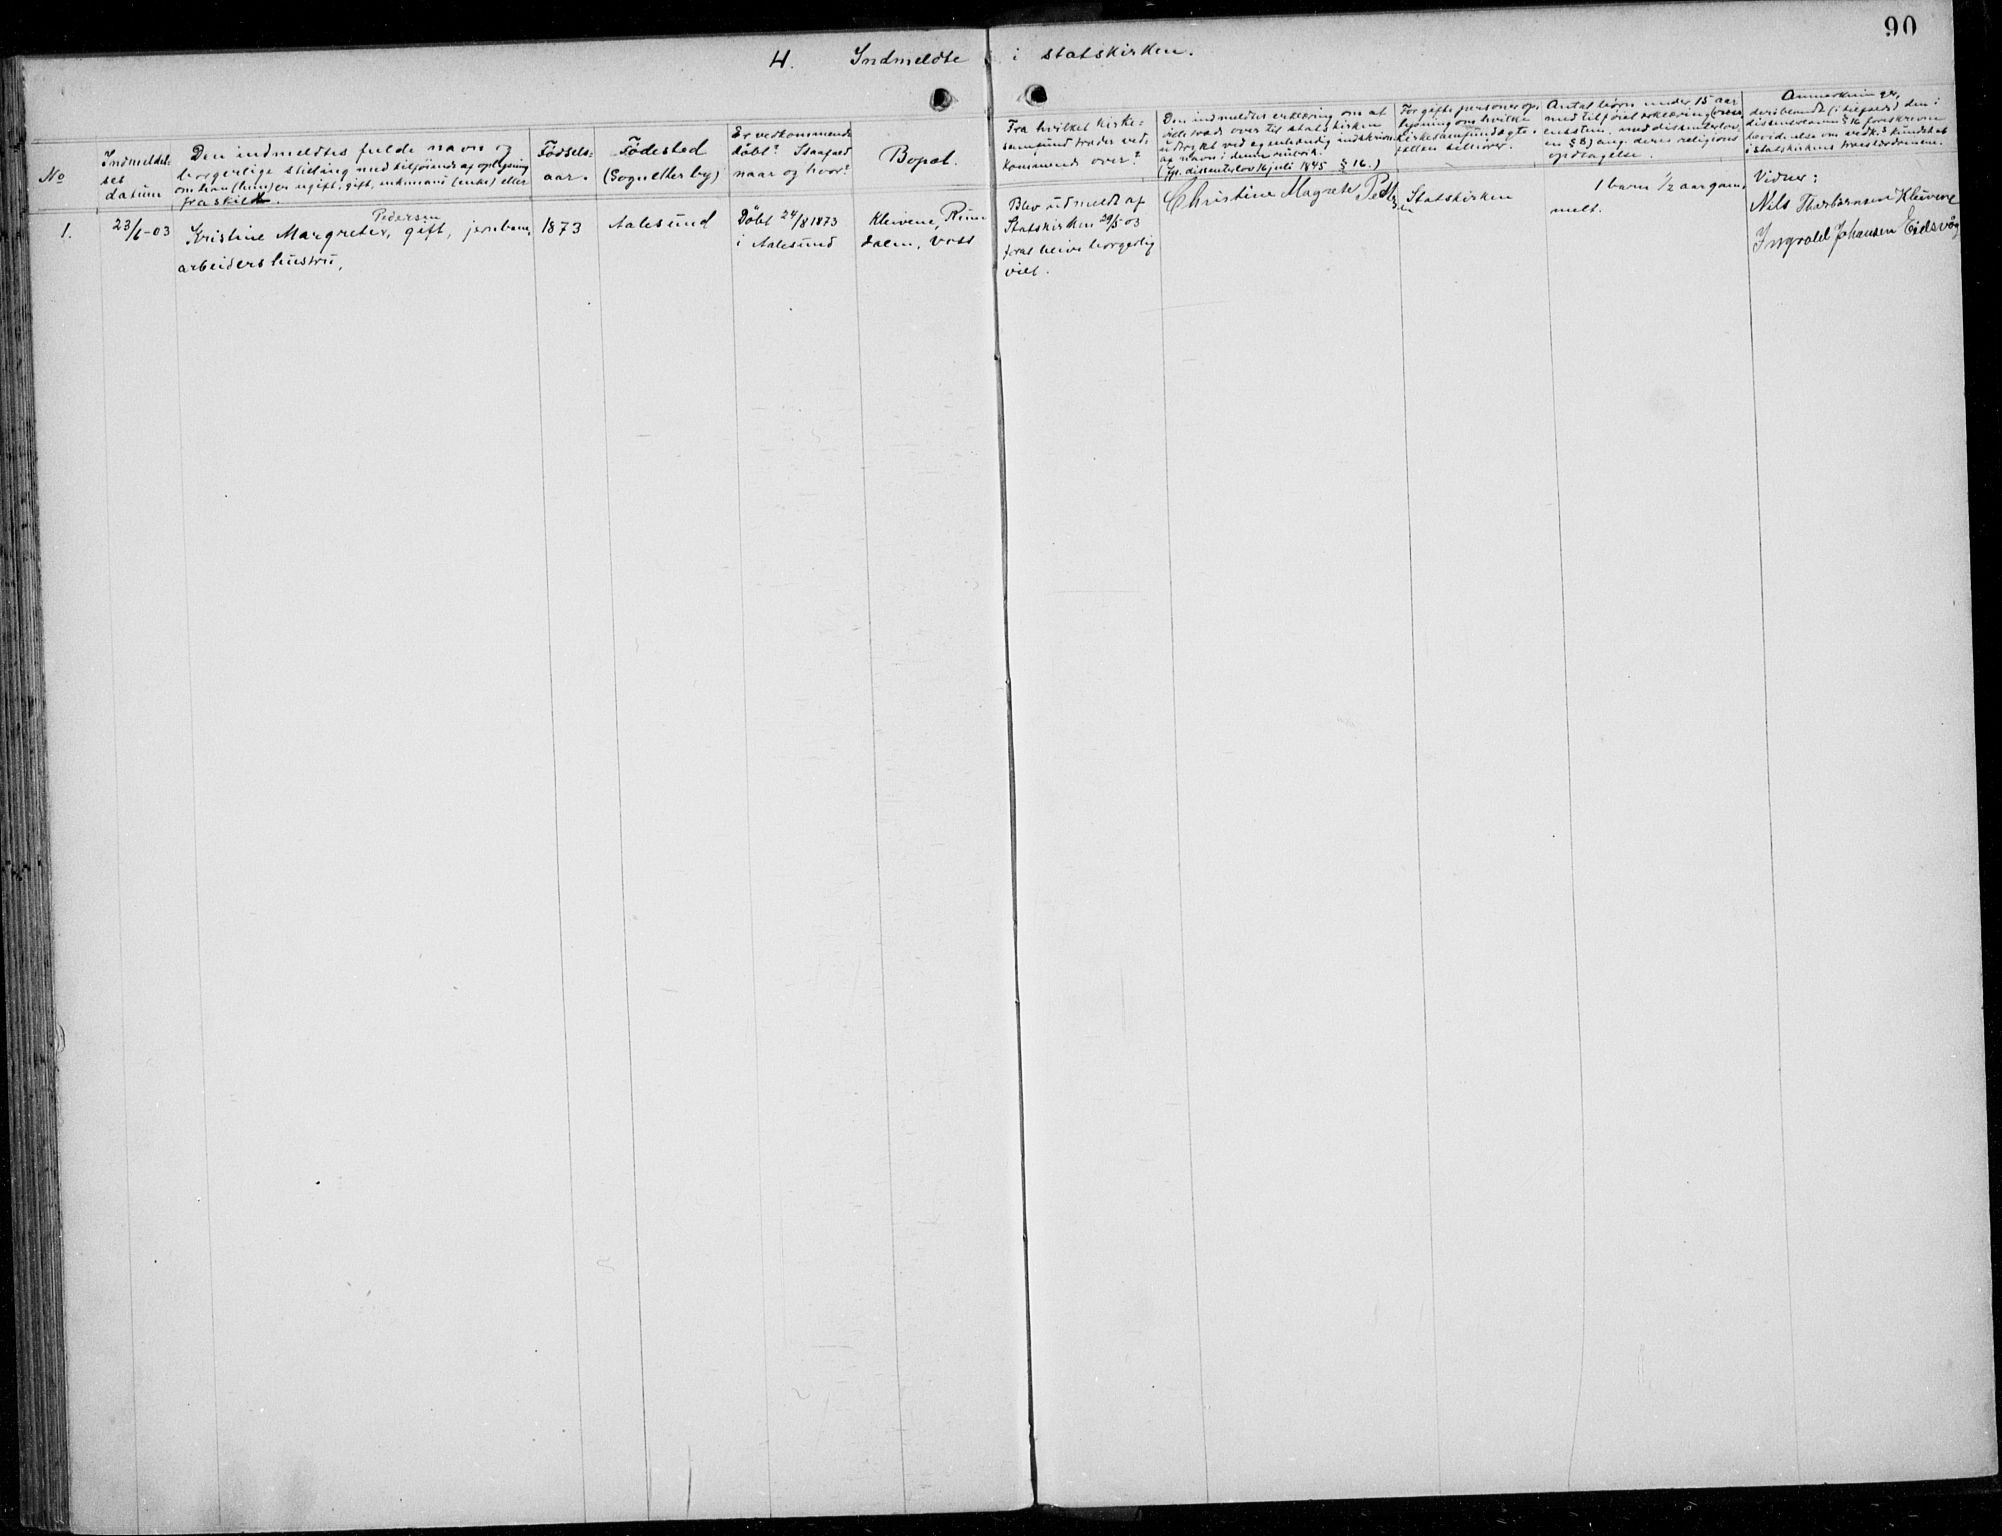 90
H. Indmeldte i statskirken.
No
Indmeldel-
ses
datum
Den indmeldtes fulde navn og
borgerlige stilling med tilföiende af oplysning
om han (hun) er ugift, gift, enkemand (enke) eller
fraskilt.
Födsels-
aar.
Födested
(Sogn eller by)
Er vedkommende
döbt? Isaafad
naar og hvor?
Bopæl.
Fra hvilket kirke-
samfund træder ved-
kommende over?
Den indmeldtes erklæring om at
ville træde over til statskirken
udtrykt ved egenhændig indskrivn.
af navn i denne rubrik.
(Jfr. dissenterlov 16 juli 1845 § 16.)
For gifte personer op-
lysning om hvilke
kirkesamfund ægte-
fellen tilhörer.
Antal börn under 15 aar
med tilföiet erklæring
en § 8) ang. deres religions
opdragelse.
Anmerkninger,
deriblandt (i tilfælde) den i
dissenterlovens § 16 foreskrevne
bevidnelse om vedk.s kundskab
i statskirkens troeslærdomme.
1.
23/6-03
Pedersen
Kristine Margrethe, gift, jernban.
arbeiders hustru,
1873
Aalesund
Döbt 24/8 1873
i Aalesund
Kleivene, Run
dalen, Voss
Blev udmeldt af
Statskirken 29/5-03
for at blive borgerlig
viet.
Christine Magrete Peders
en
Statskirken
1 barn 1/2 aar gam-
melt.
Vidner:
Nils Thorbjørnsen Kleivene
Ingvald Johansen Eidsvåg